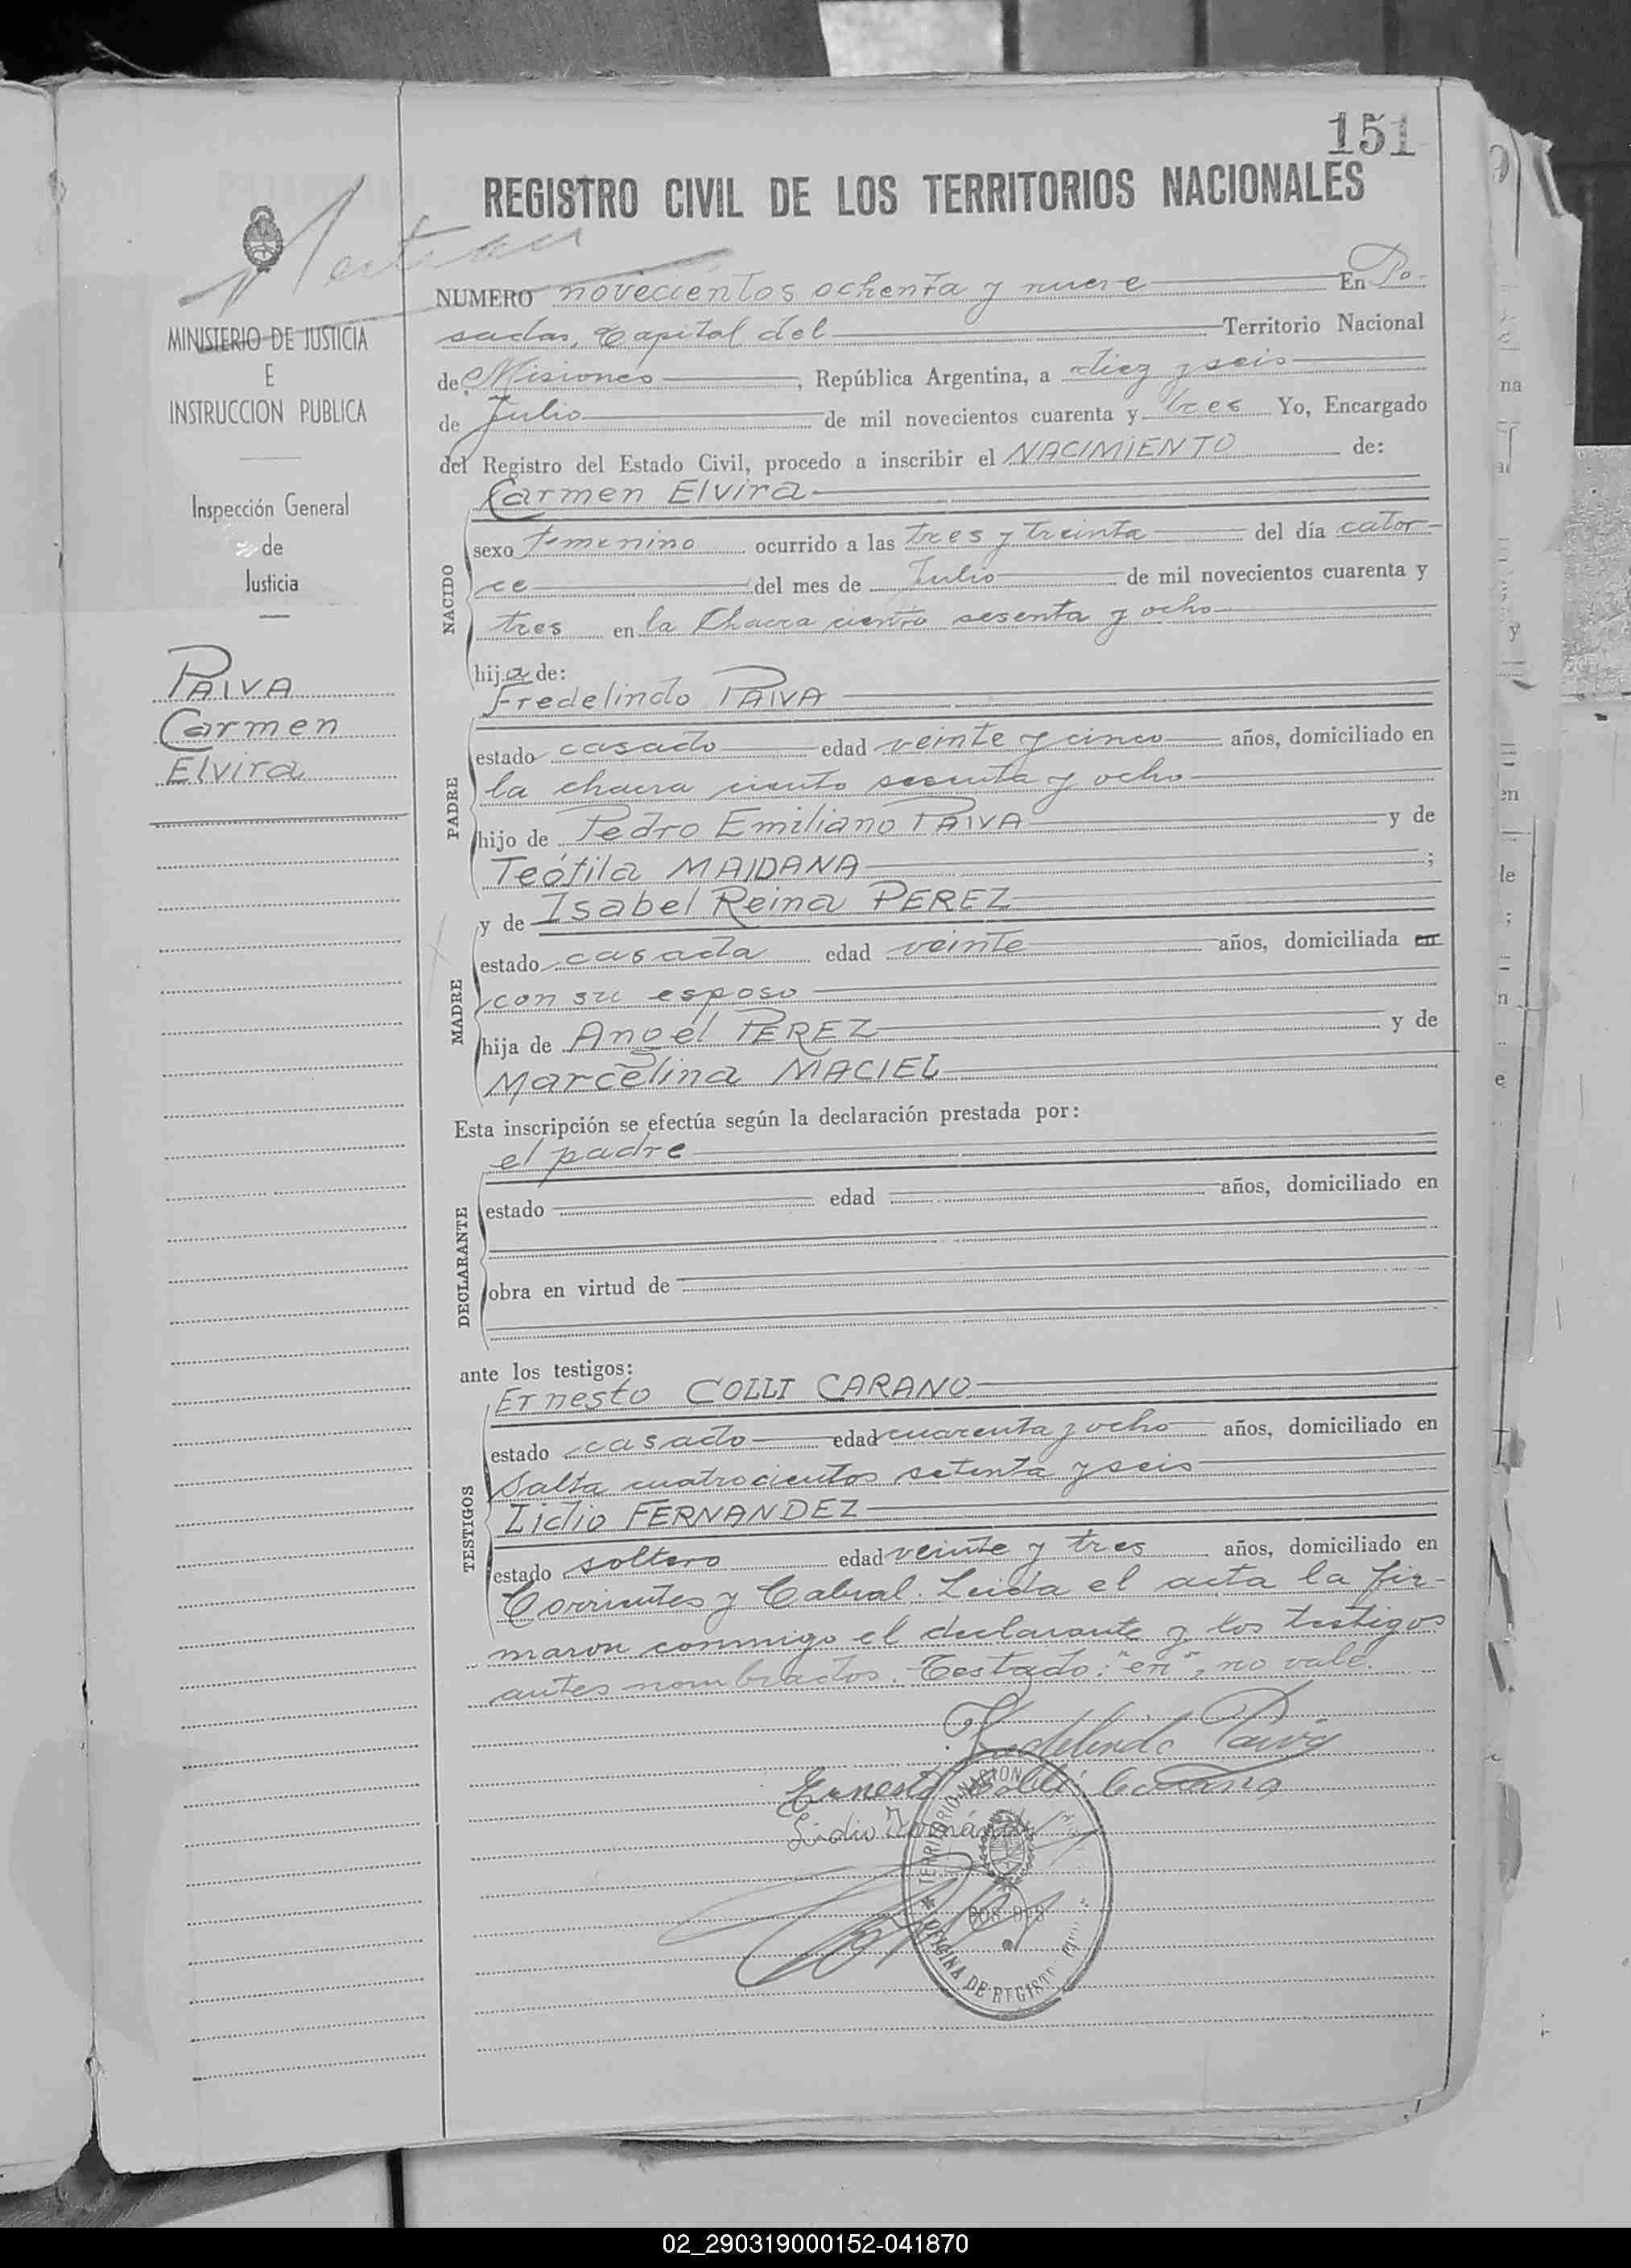 151
REGISTRO CIVIL DE LOS TERRITORIOS NACIONALES
MINISTERIO DE JUSTICIA
E
INSTRUCCION PUBLICA
Inspección General
de
Justicia
PAIVA
Carmen
Elvira
NUMERO novecientos ochenta y nueve En Po-
sadas, Capital del Territorio Nacional
de Misiones, República Argentina, a diez y seis
de Julio de mil novecientos cuarenta y tres Yo, Encargado
del Registro del Estado Civil, procedo a inscribir el NACIMIENTO de:
NACIDO
Carmen Elvira
sexo femenino ocurrido a las tres y treinta del día cator-
ce del mes de Julio de mil novecientos cuarenta y
tres en la Chacra ciento sesenta y ocho
hija de:
PADRE
Fredelindo PAIVA
estado casado edad veinte y cinco años, domiciliado en
la chacra ciento sesenta y ocho
hijo de Pedro Emiliano PAIVA y de
Teófila MAIDANA;
MADRE
y de Isabel Reina PEREZ
estado casada edad veinte años, domiciliada en
con su esposo
hija de Angel PEREZ y de
Marcelina MACIEL
Esta inscripción se efectúa según la declaración prestada por:
DECLARANTE
el padre
estado edad años, domiciliado en
obra en virtud de
ante los testigos:
TESTIGOS
Ernesto COLLI CARANO
estado casado edad cuarenta y ocho años, domiciliado en
Salta cuatrocientos setenta y seis
Lidio FERNANDEZ
estado soltero edad veinte y tres años, domiciliado en
Corrientes y Cabral. Leida el acta la fir-
maron conmigo el declarante y los testigos
antes nombrados. Testado: "en", no vale.
Fredelindo Paiva
Ernesto Colli Carano
Lidio Fernández
TERRITORIO NACION
OFICINA DE REGIST
02_290319000152-041870